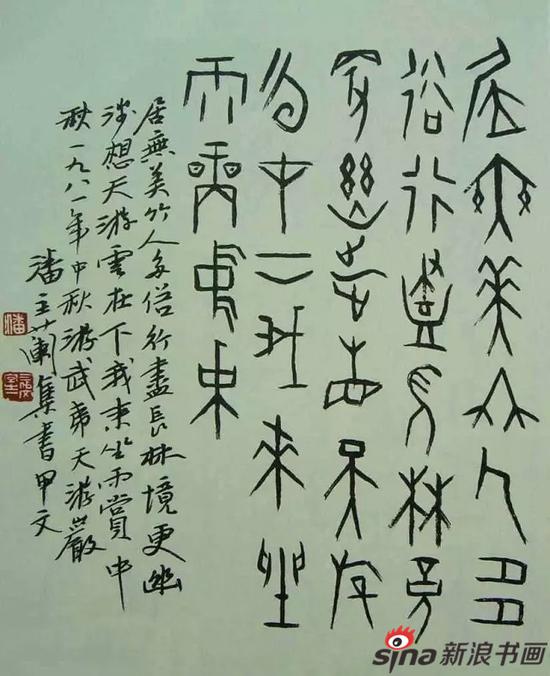 居無美竹人多
俗行盡長林境
更幽涉想天游
雲在下我來坐
雨賞中秋
居無美竹人多俗行盡長林境更幽
涉想天游雲在下我来坐雨賞中
秋一九八一年中秋游武夷天游巖
潘主蘭集書甲文
潘
sina新浪书画